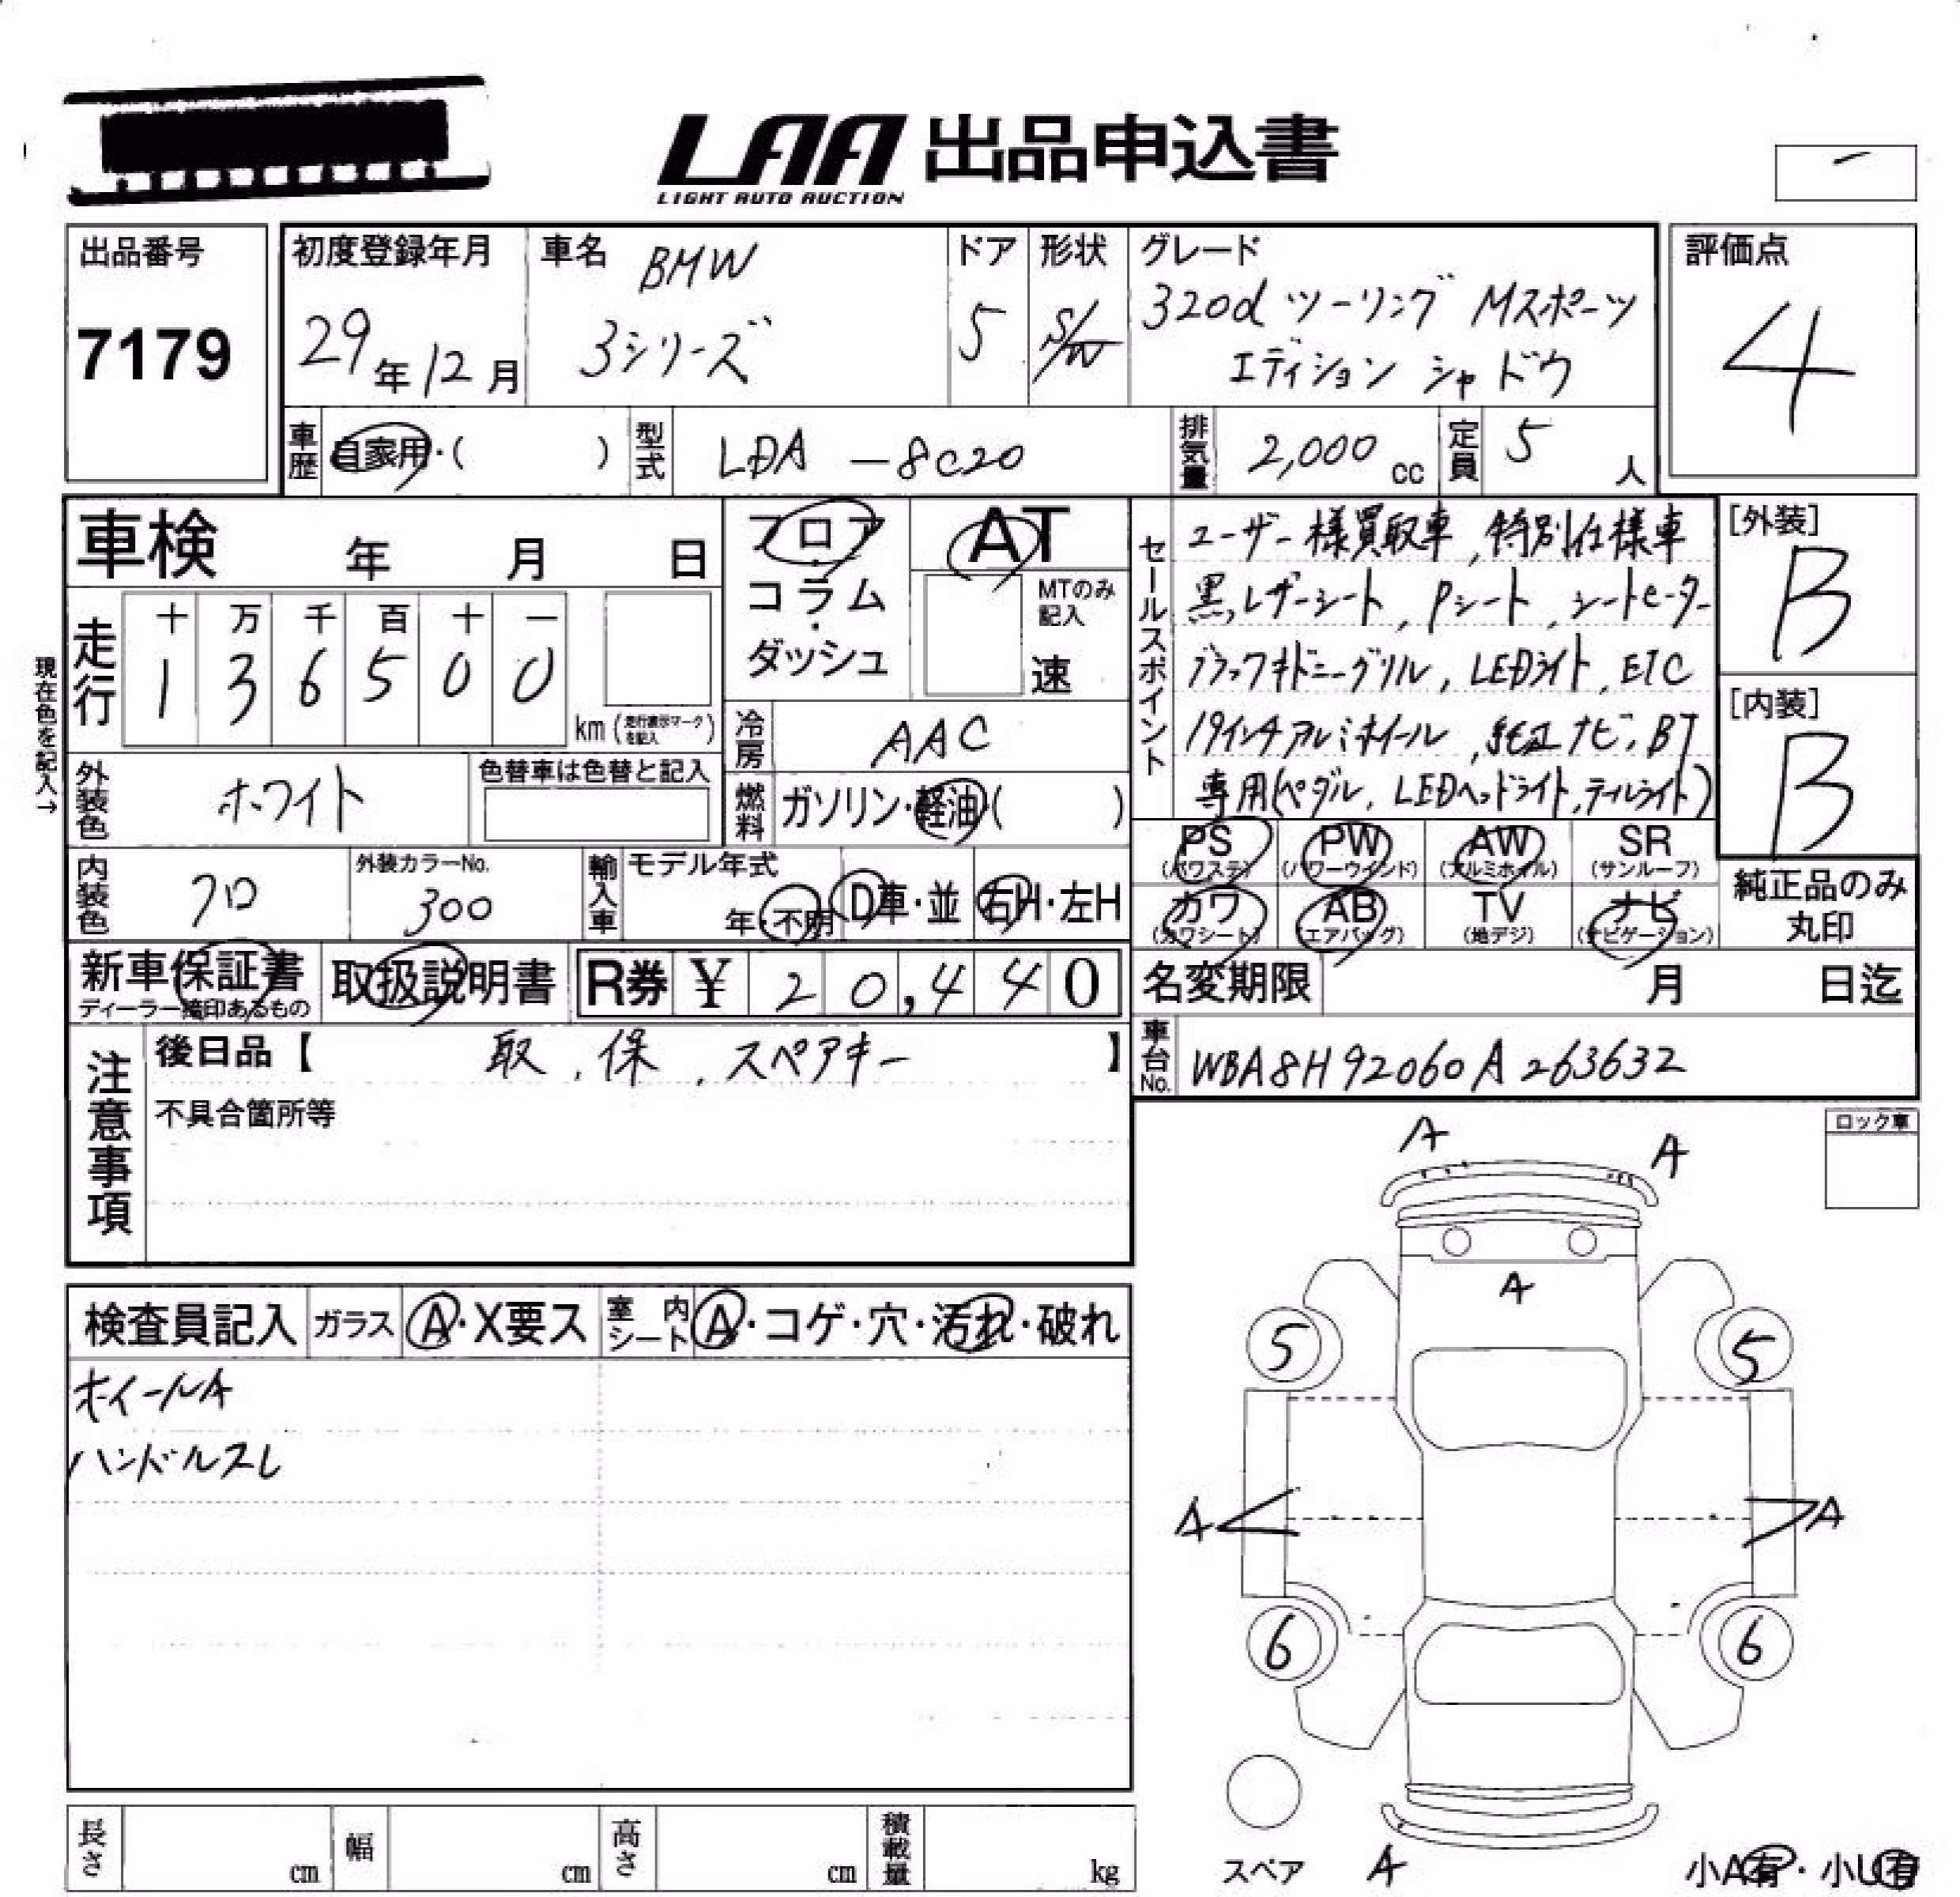 LAA 出品申込書
LIGHT AUTO AUCTION
出品番号
7179
初度登録年月
29年12月
車名 BMW
3シリーズ
ドア
5
形状
S/W
グレード
320d ツーリング Mスポーツ
エディション シャドウ
評価点
4
車歴 自家用・( )
型式 LDA-8C20
排気量 2,000 cc
定員 5 人
車検 年 月 日
フロア・コラム・ダッシュ
AT
MTのみ記入
速
セールスポイント
ユーザー様買取車, 特別仕様車
黒レザーシート, Pシート, シートヒーター
ブラックキドニーグリル, LEDライト, ETC
19インチアルミホイール, 純正ナビ, BT
専用(ペダル, LEDヘッドライト, テールライト)
[外装]
B
[内装]
B
現在色を記入→
走行
十 万 千 百 十 一
1 3 6 5 0 0
km (走行表示マークを記入)
冷房 AAC
外装色 ホワイト
色替車は色替と記入
燃料 ガソリン・軽油・( )
PS (パワステ)
PW (パワーウインド)
AW (アルミホイル)
SR (サンルーフ)
カワ (カワシート)
AB (エアバッグ)
TV (地デジ)
ナビ (ナビゲーション)
純正品のみ
丸印
内装色 クロ
外装カラーNo.
300
輸入車
モデル年式
年・不明
D車・並
右H・左H
新車保証書
ディーラー捺印あるもの
取扱説明書
R券 ¥ 20,440
名変期限 月 日迄
注意事項
後日品【 取, 保, スペアキー 】
不具合箇所等
車台No. WBA8H92060A263632
ロック車
検査員記入
ガラス A・X要ス
室内シート A・コゲ・穴・汚れ・破れ
ホイールA
ハンドルスレ
A
A
A
5
5
A
A
6
6
スペア
A
小A有・小U有
長さ cm
幅 cm
高さ cm
積載量 kg